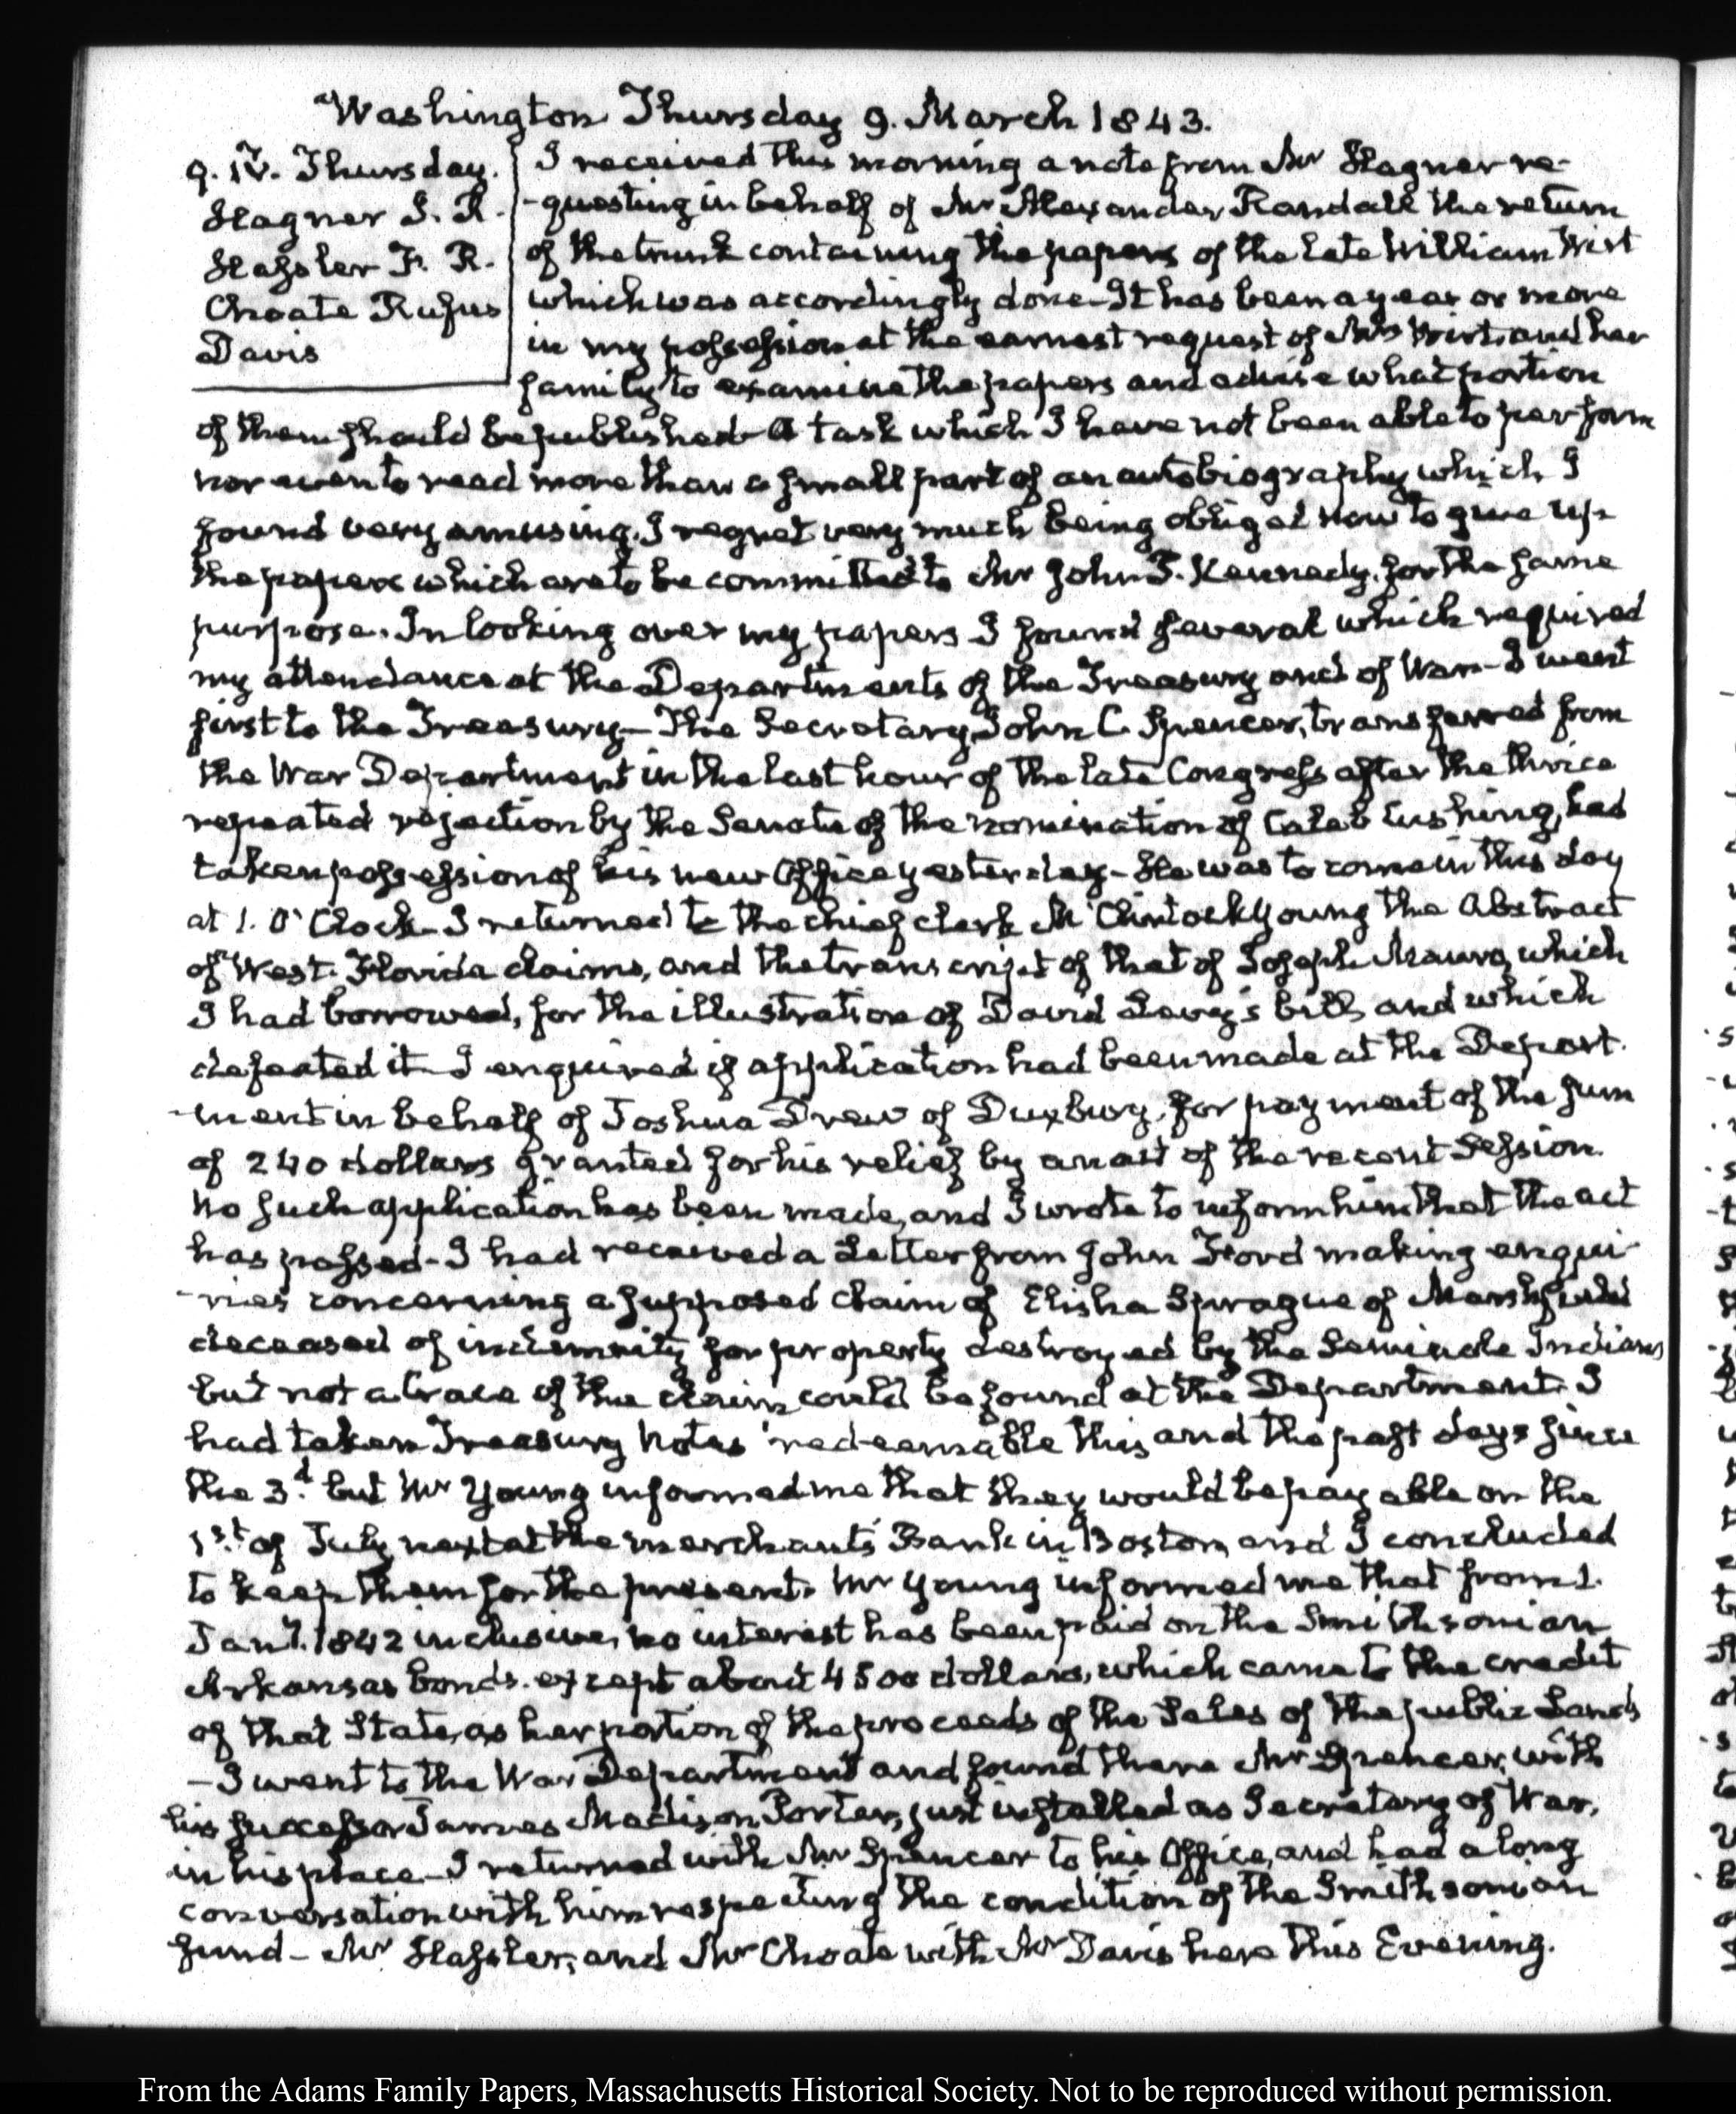 Washington Thursday 9. March 1843.
9. IV. Thursday.
Hagner
Hassler F. R.
Choate Rufus
Davis
I received this morning a note from Mr Hagner re-
-questing in behalf of Mr Alexander Randall the return
of the trunk containing the papers of the late William Wirt
which was accordingly done—It has been a year or more
in my possession at the earnest request of Mrs Wirt and her
family to examine the papers and advise what portion
of them should be published—a task which I have not been able to perform
nor even to read more than a small part of an autobiography which I
found very amusing. I regret very much being obliged now to give up
the papers which are to be committed to Mr John P. Kennedy, for the same
purpose. In looking over my papers I found several which required
my attendance at the Departments of the Treasury and of War—I went
first to the Treasury—The Secretary John C. Spencer, transferred from
the War Department in the last hour of the late Congress after the thrice
repeated rejection by the Senate of the nomination of Caleb Cushing, had
taken possession of his new Office yesterday—He was to come in this day
at 1. O'Clock—I returned to the chief clerk McClintock Young the Abstract
of West-Florida claims, and the transcript of that of Joseph Mauro, which
I had borrowed, for the illustration of David Levy's bill, and which
defeated it—I enquired if application had been made at the Depart-
-ment in behalf of Joshua Drew of Duxbury, for payment of the sum
of 240 dollars granted for his relief by an act of the recent Session.
No such application has been made, and I wrote to inform him that the act
has passed—I had received a Letter from John Ford making enqui-
-ries concerning a supposed claim of Elisha Sprague of Marshfield
deceased of indemnity for property destroyed by the Seminole Indians
but not a trace of the claim could be found at the Department. I
had taken Treasury Notes redeemable this and the past days since
the 3.d but Mr Young informed me that they would be payable on the
1st of July next at the merchants' Bank in Boston, and I concluded
to keep them for the present. Mr Young informed me that from 1.
Jany. 1842 inclusive, no interest has been paid on the Smithsonian
Arkansas bonds. except about 4500 dollars, which came to the credit
of that State, as her portion of the proceeds of the Sales of the public Lands
—I went to the War Department and found there Mr Spencer, with
his successor James Madison Porter, just installed as Secretary of War,
in his place—I returned with Mr Spencer to his Office, and had a long
conversation with him respecting the condition of the Smithsonian
fund—Mr Hassler, and Mr Choate with Mr Davis here this Evening.
From the Adams Family Papers, Massachusetts Historical Society. Not to be reproduced without permission.